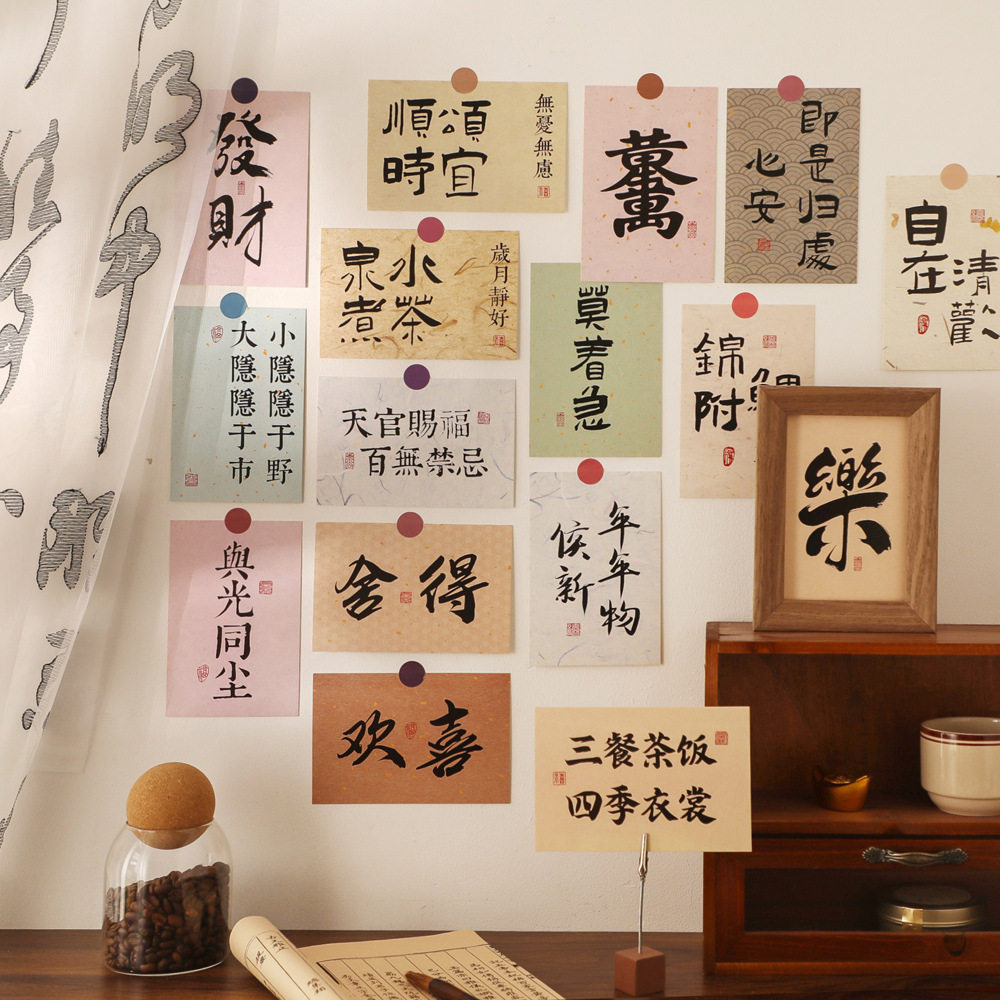 發財
順頌
時宜
無憂無慮
心安
即是归處
自在
清歡
泉水
煮茶
歲月靜好
莫着急
錦附
小隱隱于野
大隱隱于市
天官賜福
百無禁忌
樂
年年物
候新
與光同尘
舍得
欢喜
三餐茶饭
四季衣裳